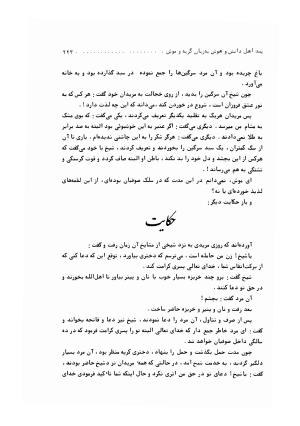 پند اهل دانش و هوش بزبان گربه و موش . . . . . . . . . . . . . . . . ۲۲۳
باغ چریده بود و آن مرد سرگین‌ها را جمع نموده در سبد گذارده بود و به خانه
می‌آورد .
چون شیخ آن سرگین را بدید ، از روی خجالت به مریدان گفت : هر کس که به
نور عشق فروزان است ، از روی حقیقت می‌داند که این چه لذت دارد ! .
پس مریدان هریک به تقلید یکدیگر تعریف می‌کردند ، یکی می‌گفت : که بوی مشک
به مشام من میرسد . دیگری می‌گفت : اگر عنبر به این خوشبوئی بود البته به صد برابر
به طلا نمی‌دادند . دیگری می‌گفت : این چاشنی را که این دارد ، شکر ندارد . تا آن
از سگ کمتران ، یک سبد سرگین را بخوردند و تعریف کردند ، شیخ با خود می‌گفت که
هرکس از این بچشد و دل خود را بد نکند ، باطن او البته صاف گردد و قوت گرسنگی و
تشنگی به هم می‌رساند ! .
ای موش ، نمی‌دانم در این مدت که در سلک صوفیان بوده‌ای ، از این لقمه‌های
لذیذ خورده‌ای یا نه؟
و باز حکایت دیگر :
حکایت
آورده‌اند که روزی مریدی به نزد شیخی از مشایخ آن زمان رفت و گفت :
یا شیخ ! زن من حامله است ، می‌ترسم که دختری بیاورد ، توقع آن که دعا کنی که
از برکت انفاس شما ، خدای تعالی پسری کرامت کند .
شیخ گفت : برو چند خربزه خوب با نان و پنیر بیاور تا اهل‌الله بخورند و
در حق تو دعا کنند .
آن مرد گفت : بچشم !
بعد رفت و نان و پنیر و خربزه حاضر ساخت .
پس از صرف و تناول ، آن مرد را دعا نمودند . شیخ نیز دعا و فاتحه بخواند و
گفت : ای مرد خاطر جمع دار که خدای تعالی البته تو را پسری کرامت فرمود که در ده
سالگی داخل صوفیان خواهد شد .
چون مدت حمل بگذشت و حمل را بنهاد ، دختری کریه منظر بود ، آن مرد بسیار
دلگیر گردید ، به خدمت شیخ آمد . در حالتی که همهٔ مریدان نزد شیخ حاضر بودند ،
گفت : یا شیخ ! دعای تو در حق من اثری نکرد و حال اینکه شما تأکید فرمودی خدای